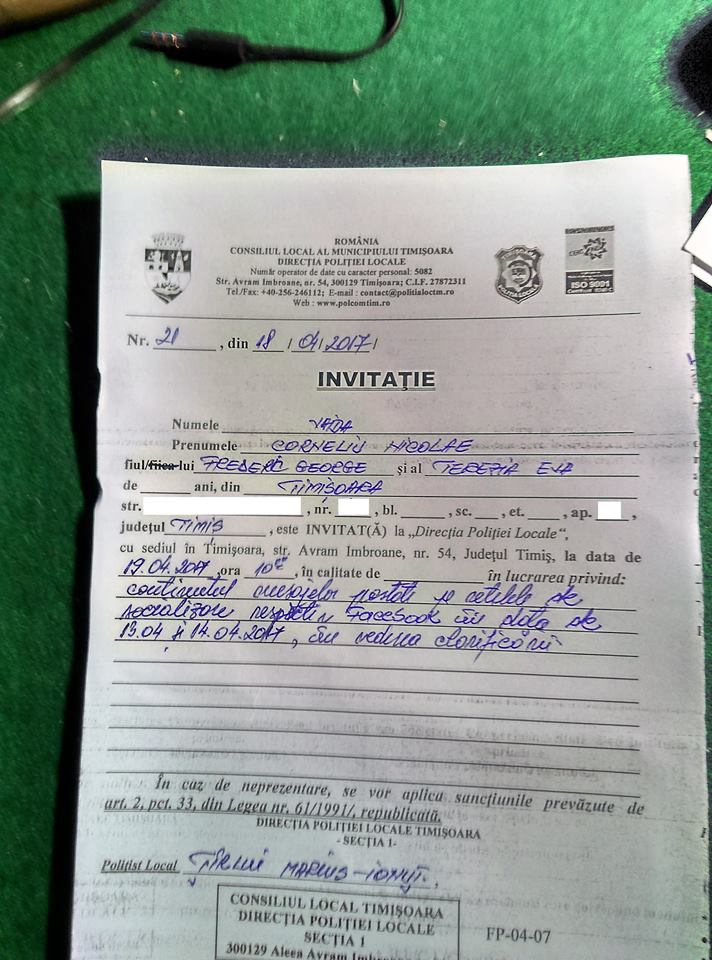 ROMÂNIA
CONSILIUL LOCAL AL MUNICIPIULUI TIMIȘOARA
DIRECȚIA POLIȚIEI LOCALE
Număr operator de date cu caracter personal: 5082
Str. Avram Imbroane, nr. 54, 300129 Timișoara; C.I.F. 27872311
Tel./Fax: +40-256-246112; E-mail : contact@politialoctm.ro
Web : www.polcomtim.ro
POLIȚIA LOCALĂ
ISO 9001
Nr. 21 , din 18 / 04 / 2017 /
INVITAȚIE
Numele VAIDA
Prenumele CORNELIU NICOLAE
fiul/fiica lui FREDERIC GEORGE și al TEREZIA EVA
de ani, din TIMIȘOARA
str. , nr. , bl. , sc. , et. , ap. ,
județul TIMIȘ , este INVITAT(Ă) la „Direcția Poliției Locale",
cu sediul în Timișoara, str. Avram Imbroane, nr. 54, Județul Timiș, la data de
19.04.2017 ,ora 10 , în calitate de în lucrarea privind:
conținutul mesajelor postate pe rețelele de
socializare respectiv Facebook în data de
13.04 și 14.04.2017, în vederea clarificării
În caz de neprezentare, se vor aplica sancțiunile prevăzute de
art. 2, pct. 33, din Legea nr. 61/1991/, republicată.
DIRECȚIA POLIȚIEI LOCALE TIMIȘOARA
- SECȚIA 1-
Polițist Local MARIUS-IONUȚ.
CONSILIUL LOCAL TIMIȘOARA
DIRECȚIA POLIȚIEI LOCALE
SECȚIA 1
300129 Aleea Avram Imbroane
FP-04-07